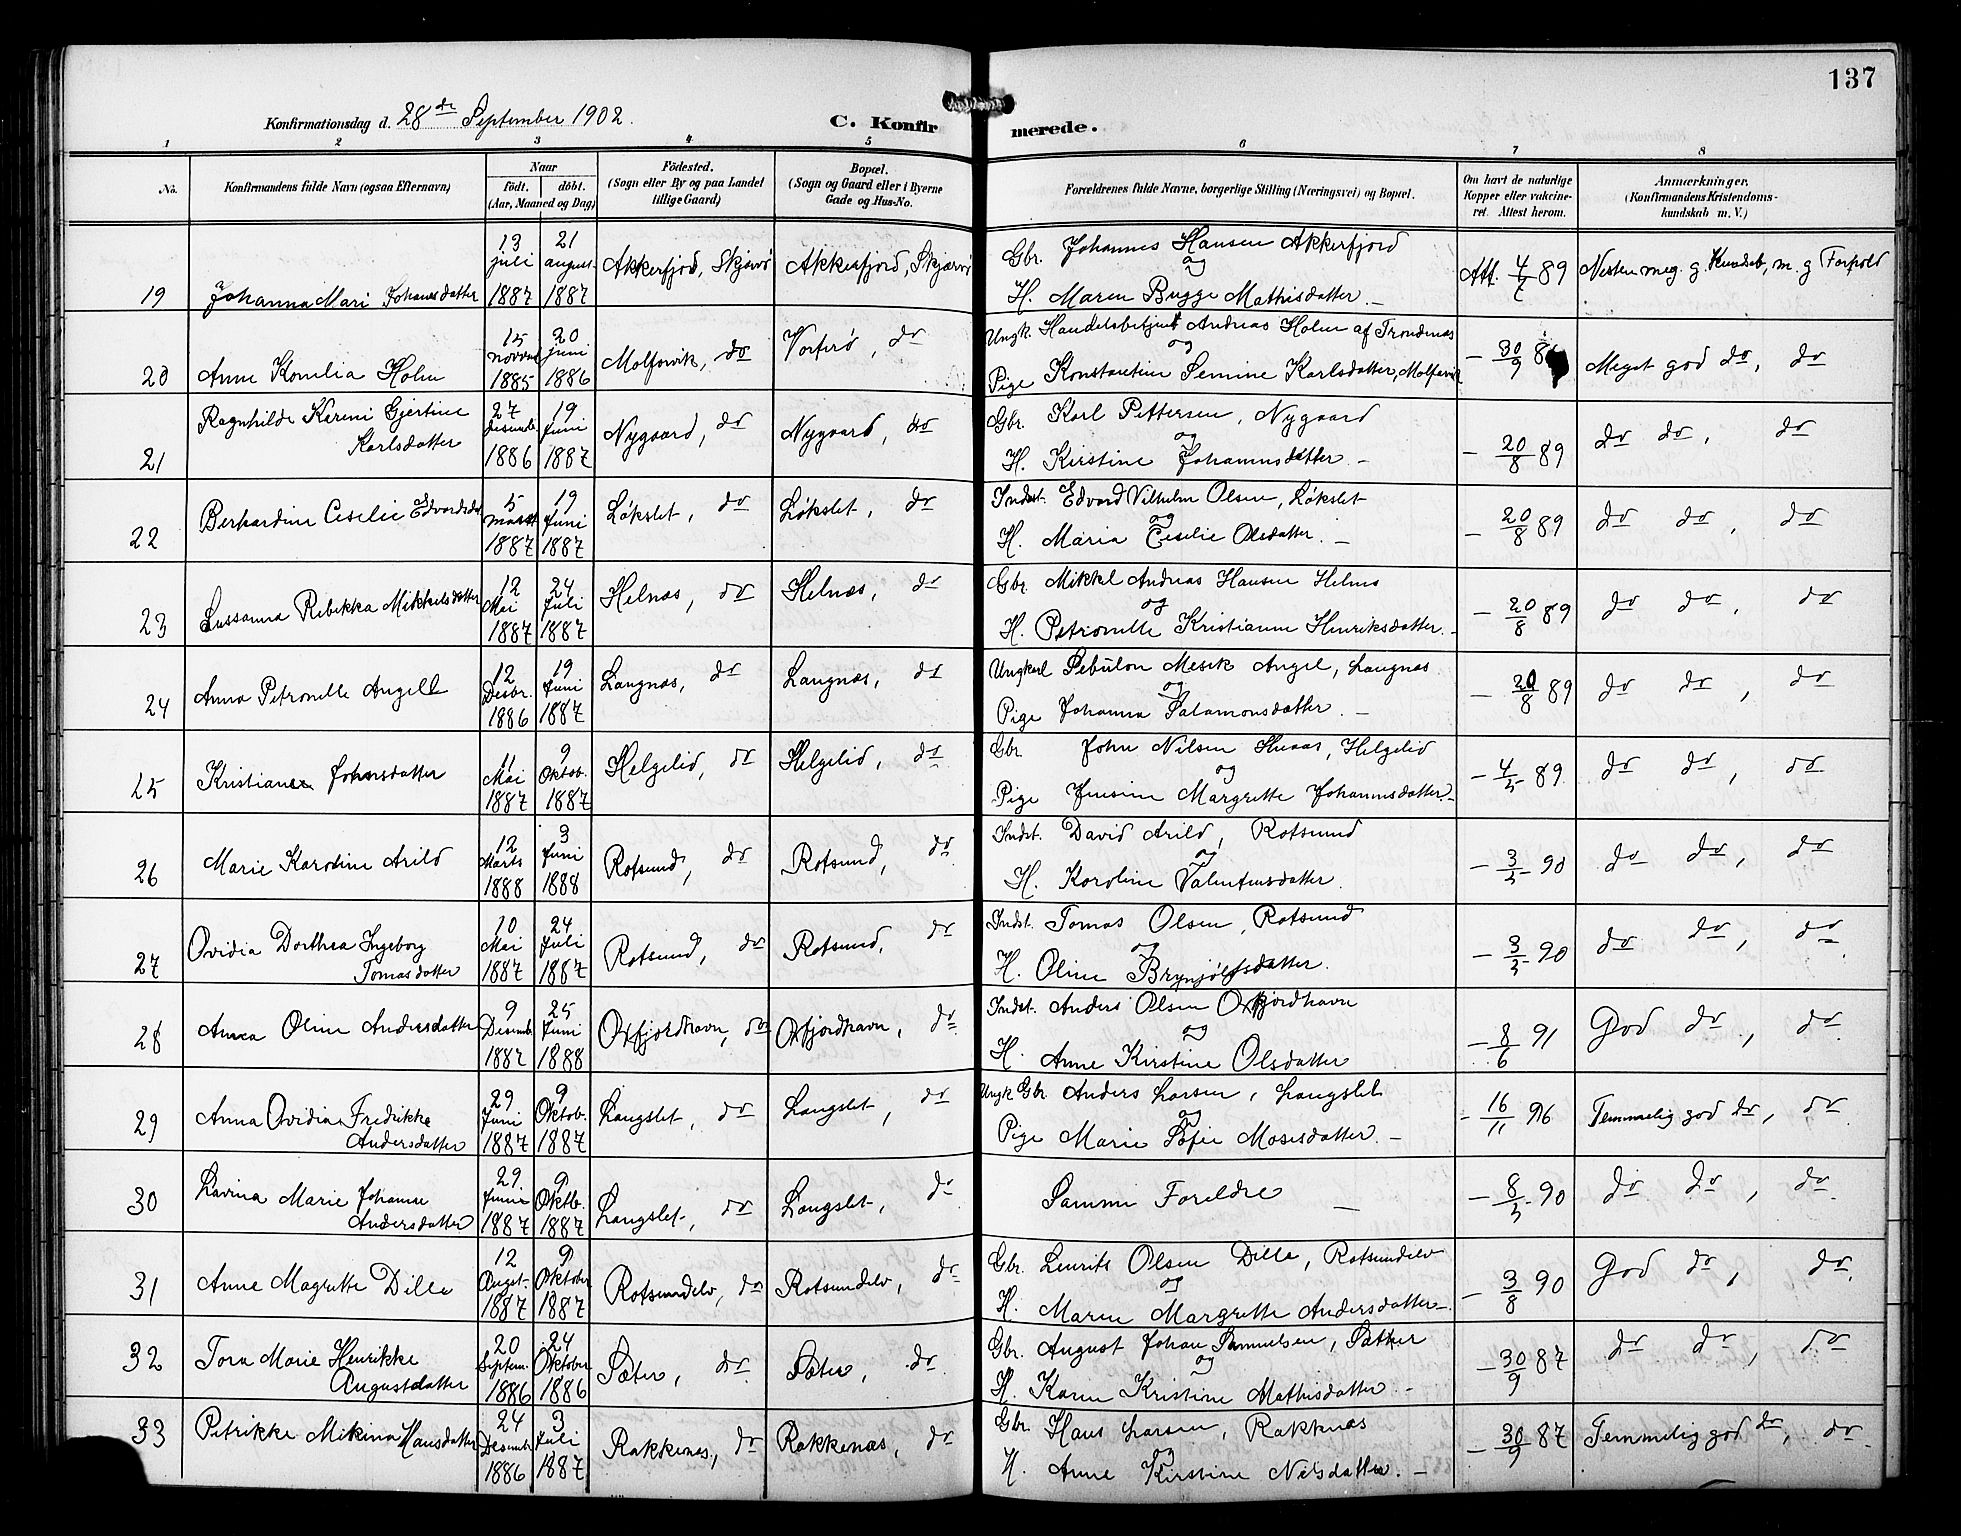 137
Konfirmationsdag d. 28de September 1902. C. Konfirmerede.
1 2 3 4 5 6 7 8
No. Konfirmandens fulde Navn (ogsaa Efternavn) Naar födt. döbt. (Aar, Maaned og Dag) Födested. (Sogn eller By og paa Landet tillige Gaard) Bopæl. (Sogn og Gaard eller i Byerne Gade og Hus-No. Forældrenes fulde Navne, borgerlige Stilling (Næringsvei) og Bopæl. Om havt de naturlige Kopper eller vakcineret. Attest herom. Anmærkninger. (Konfirmandens Kristendomskundskab m. V.)
19 Johanna Mari Johansdatter 13 juli 1887 21 august 1887 Akkerfjord, Skjervö Akkerfjord, Skjærvö Gbr. Johannes Hansen Akkerfjord
og
H. Maren Bugge Mathisdatter. — Att. 89 Nesten meg. g. Kundsk, m. g Forhold
20 Anne Kornelia Holm 15 novem 1885 20 juni 1886 Molfsvik, do Vorterö, do Ungk. Handelsbetjent Andreas Holm af Trondenæs
og
Pige Konstantine Semine Karlsdatter, Molfsvik — 30/9 Meget god do, do
21 Ragnhilde Kereni Gjertine
Karlsdatter 27 desemb 1886 19 Juni 1887 Nygaard, do Nygaard, do Gbr. Karl Pettersen, Nygaard
og
H. Kirstine Johannesdatter. — — 20/8 89 do do, do
22 Berhardine Ceselie Edvardsdat 5 marts 1887 19 Juni 1887 Løkslet, do Løkslet, do Indst. Edvard Vilhelm Olsen, Løkslet
og
H. Maria Ceselie Olsdatter. — — 20/8 89 do do, do
23 Sussanna Rebekka Mikkelsdatter 12 Mai 1887 24 Juli 1887 Helnæs, do Helnæs, do Gbr Mikkel Andreas Hansen Helnæs
og
H. Petronelle Kristianne Henriksdatter. — — 20/8 89 do do, do
24 Anna Petronelle Angell 12 Desbr. 1886 19 Juni 1887 Langnæs, do Langnæs, do Ungkarl Sebulon Mesek Angel, Langnæs
og
Pige Johanna Salamonsdatter. — — 20/8 89 do do, do
25 Kristiane Johnsdatter 11 Mai 1887 9 Oktob. 1887 Helgelid, do Helgelid, do Gbr. John Nilsen Husaas, Helgelid
og
Pige Jensine Margrette Johannesdatter. — — 4/5 89 do do, do
26 Marie Karoline Arild 12 Marts 1888 3 Juni 1888 Rotsund, do Rotsund, do Indst. David Arild, Rotsund
og
H. Karoline Valentinsdatter. — 3/5 90 do do, do
27 Ovidia Dorthea Ingeborg
Tomasdatter 10 Mai 1887 24 Juli 1887 Rotsund, do Rotsund, do Indst. Tomas Olsen, Rotsund
og
H. Oline Brynjölfsdatter. — 3/5 90 do do, do
28 Anna Oline Andersdatter 9 Desemb. 1887 25 Juni 1888 Oxfjordhavn, do Oxfjordhavn, do Indst. Anders Olsen Oxfjordhavn
og
H. Anne Kirstine Olsdatter — 8/6 91 God do, do
29 Anna Ovidia Fredrikke
Andersdatter 29 Juni 1887 9 Oktob. 1887 Langslet, do Langslet, do Ungk Gbr Anders Larsen, Langslet
og
Pige Marie Sofie Mosesdatter. — — 16/11 96 Temmelig god do, do
30 Lavina Marie Johanne
Andersdatter 29 Juni 1887 9 Oktb. 1887 Langslet, do Langslet, do Samme Foreldre — — 8/5 90 do do, do
31 Anne Magrette Dille 12 Augst. 1887 9 Oktober 1887 Rotsundelv, do Rotsundelv, do Gbr. Lenrits Olsen Dille, Rotsundelv
og
H. Maren Margrette Andersdatter — — 3/8 90 God do, do
32 Tora Marie Henrikke
Augustdatter 20 Septem. 1886 24 Oktober 1886 Sæter, do Sæter, do Gbr. August Johan Samuelsen, Sætter
og
H. Karen Kristine Mathisdatter. — — 30/9 87 do do, do
33 Petrikke Mikina Hansdatter 24 Desembr 1886 3 Juli 1887 Rakkenæs, do Rakkenæs, do Gbr Hans Larsen, Rakknæs
og
H. Anne Kirstine Nilsdatter. — — 30/9 87 Temmelig god do, do